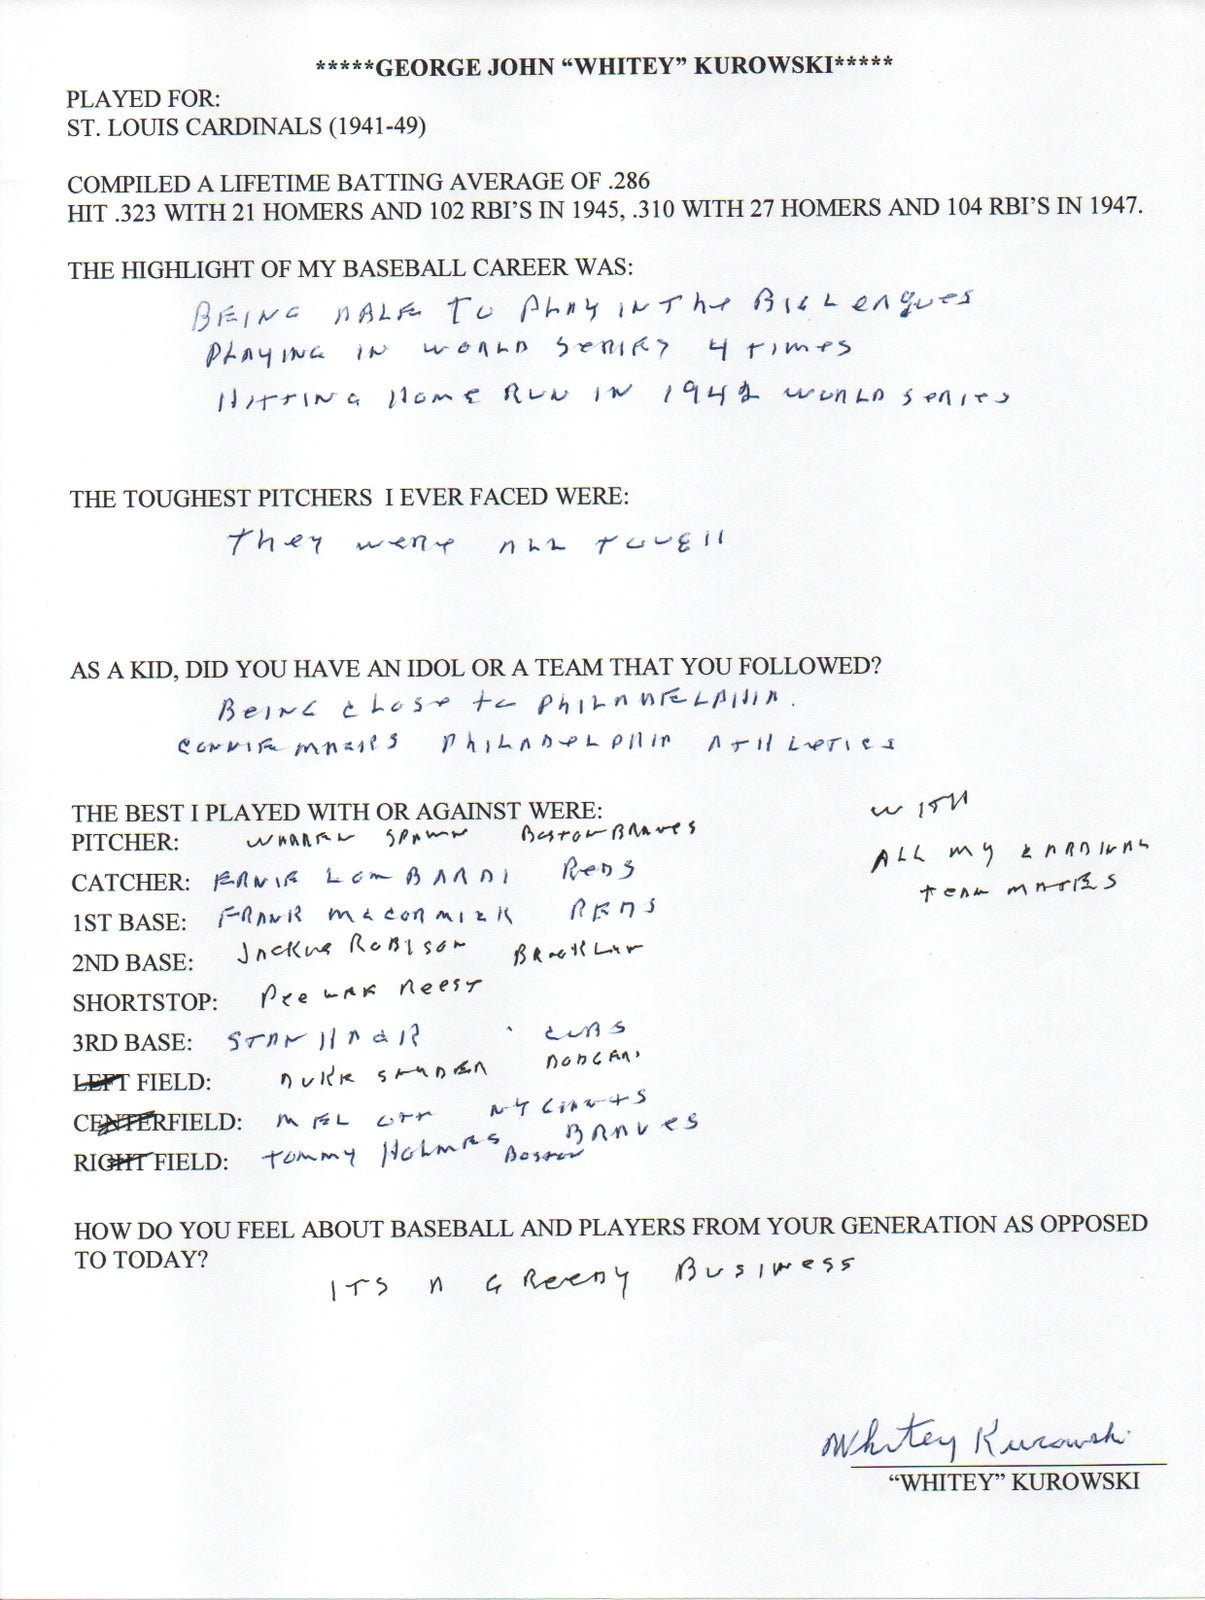 *****GEORGE JOHN “WHITEY” KUROWSKI*****
PLAYED FOR:
ST. LOUIS CARDINALS (1941-49)
COMPILED A LIFETIME BATTING AVERAGE OF .286
HIT .323 WITH 21 HOMERS AND 102 RBI’S IN 1945, .310 WITH 27 HOMERS AND 104 RBI’S IN 1947.
THE HIGHLIGHT OF MY BASEBALL CAREER WAS:
BEING ABLE TO PLAY IN THE BIG LEAGUES
PLAYING IN WORLD SERIES 4 TIMES
HITTING HOME RUN IN 1942 WORLD SERIES
THE TOUGHEST PITCHERS I EVER FACED WERE:
THEY WERE ALL TOUGH
AS A KID, DID YOU HAVE AN IDOL OR A TEAM THAT YOU FOLLOWED?
BEING CLOSE TO PHILADELPHIA.
CONNIE MACKS PHILADELPHIA ATHLETICS
THE BEST I PLAYED WITH OR AGAINST WERE: WITH
PITCHER: WARREN SPAHN BOSTON BRAVES ALL MY CARDINAL
CATCHER: ERNIE LOMBARDI REDS TEAM MATES
1ST BASE: FRANK McCORMICK REDS
2ND BASE: JACKIE ROBISON BROOKLYN
SHORTSTOP: PEE WEE REESE
3RD BASE: STAN HACK CUBS
LEFT FIELD: DUKE SNYDER DODGERS
CENTERFIELD: MEL OTT NY GIANTS
RIGHT FIELD: TOMMY HOLMES BOSTON BRAVES
HOW DO YOU FEEL ABOUT BASEBALL AND PLAYERS FROM YOUR GENERATION AS OPPOSED
TO TODAY?
ITS A GREEDY BUSINESS
Whitey Kurowski
“WHITEY” KUROWSKI